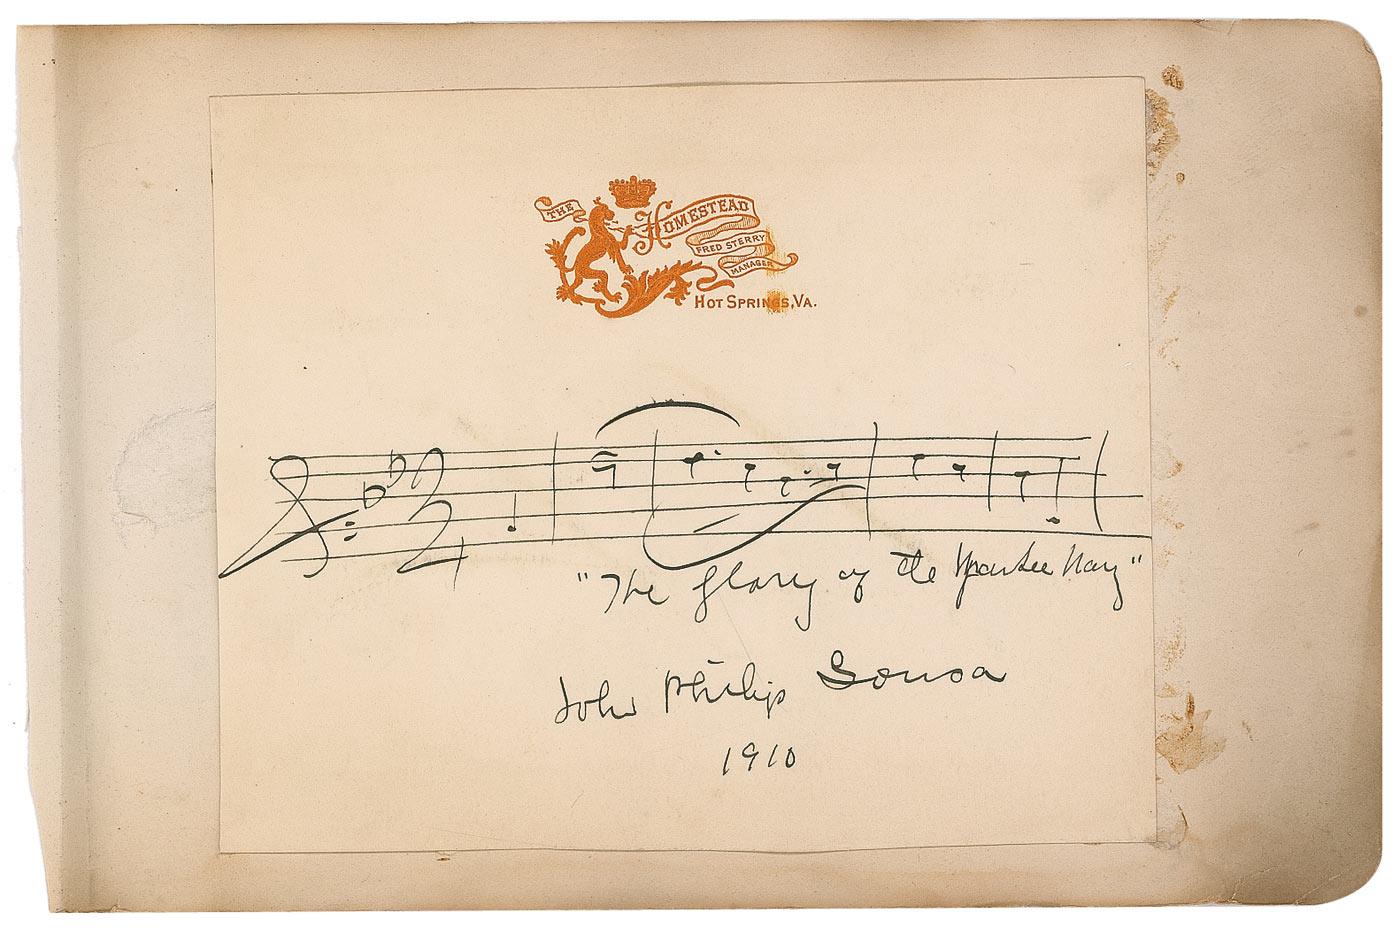 THE HOMESTEAD
FRED STERRY
MANAGER
HOT SPRINGS, VA.
2/4
"The Glory of the Yankee Navy"
John Philip Sousa
1910